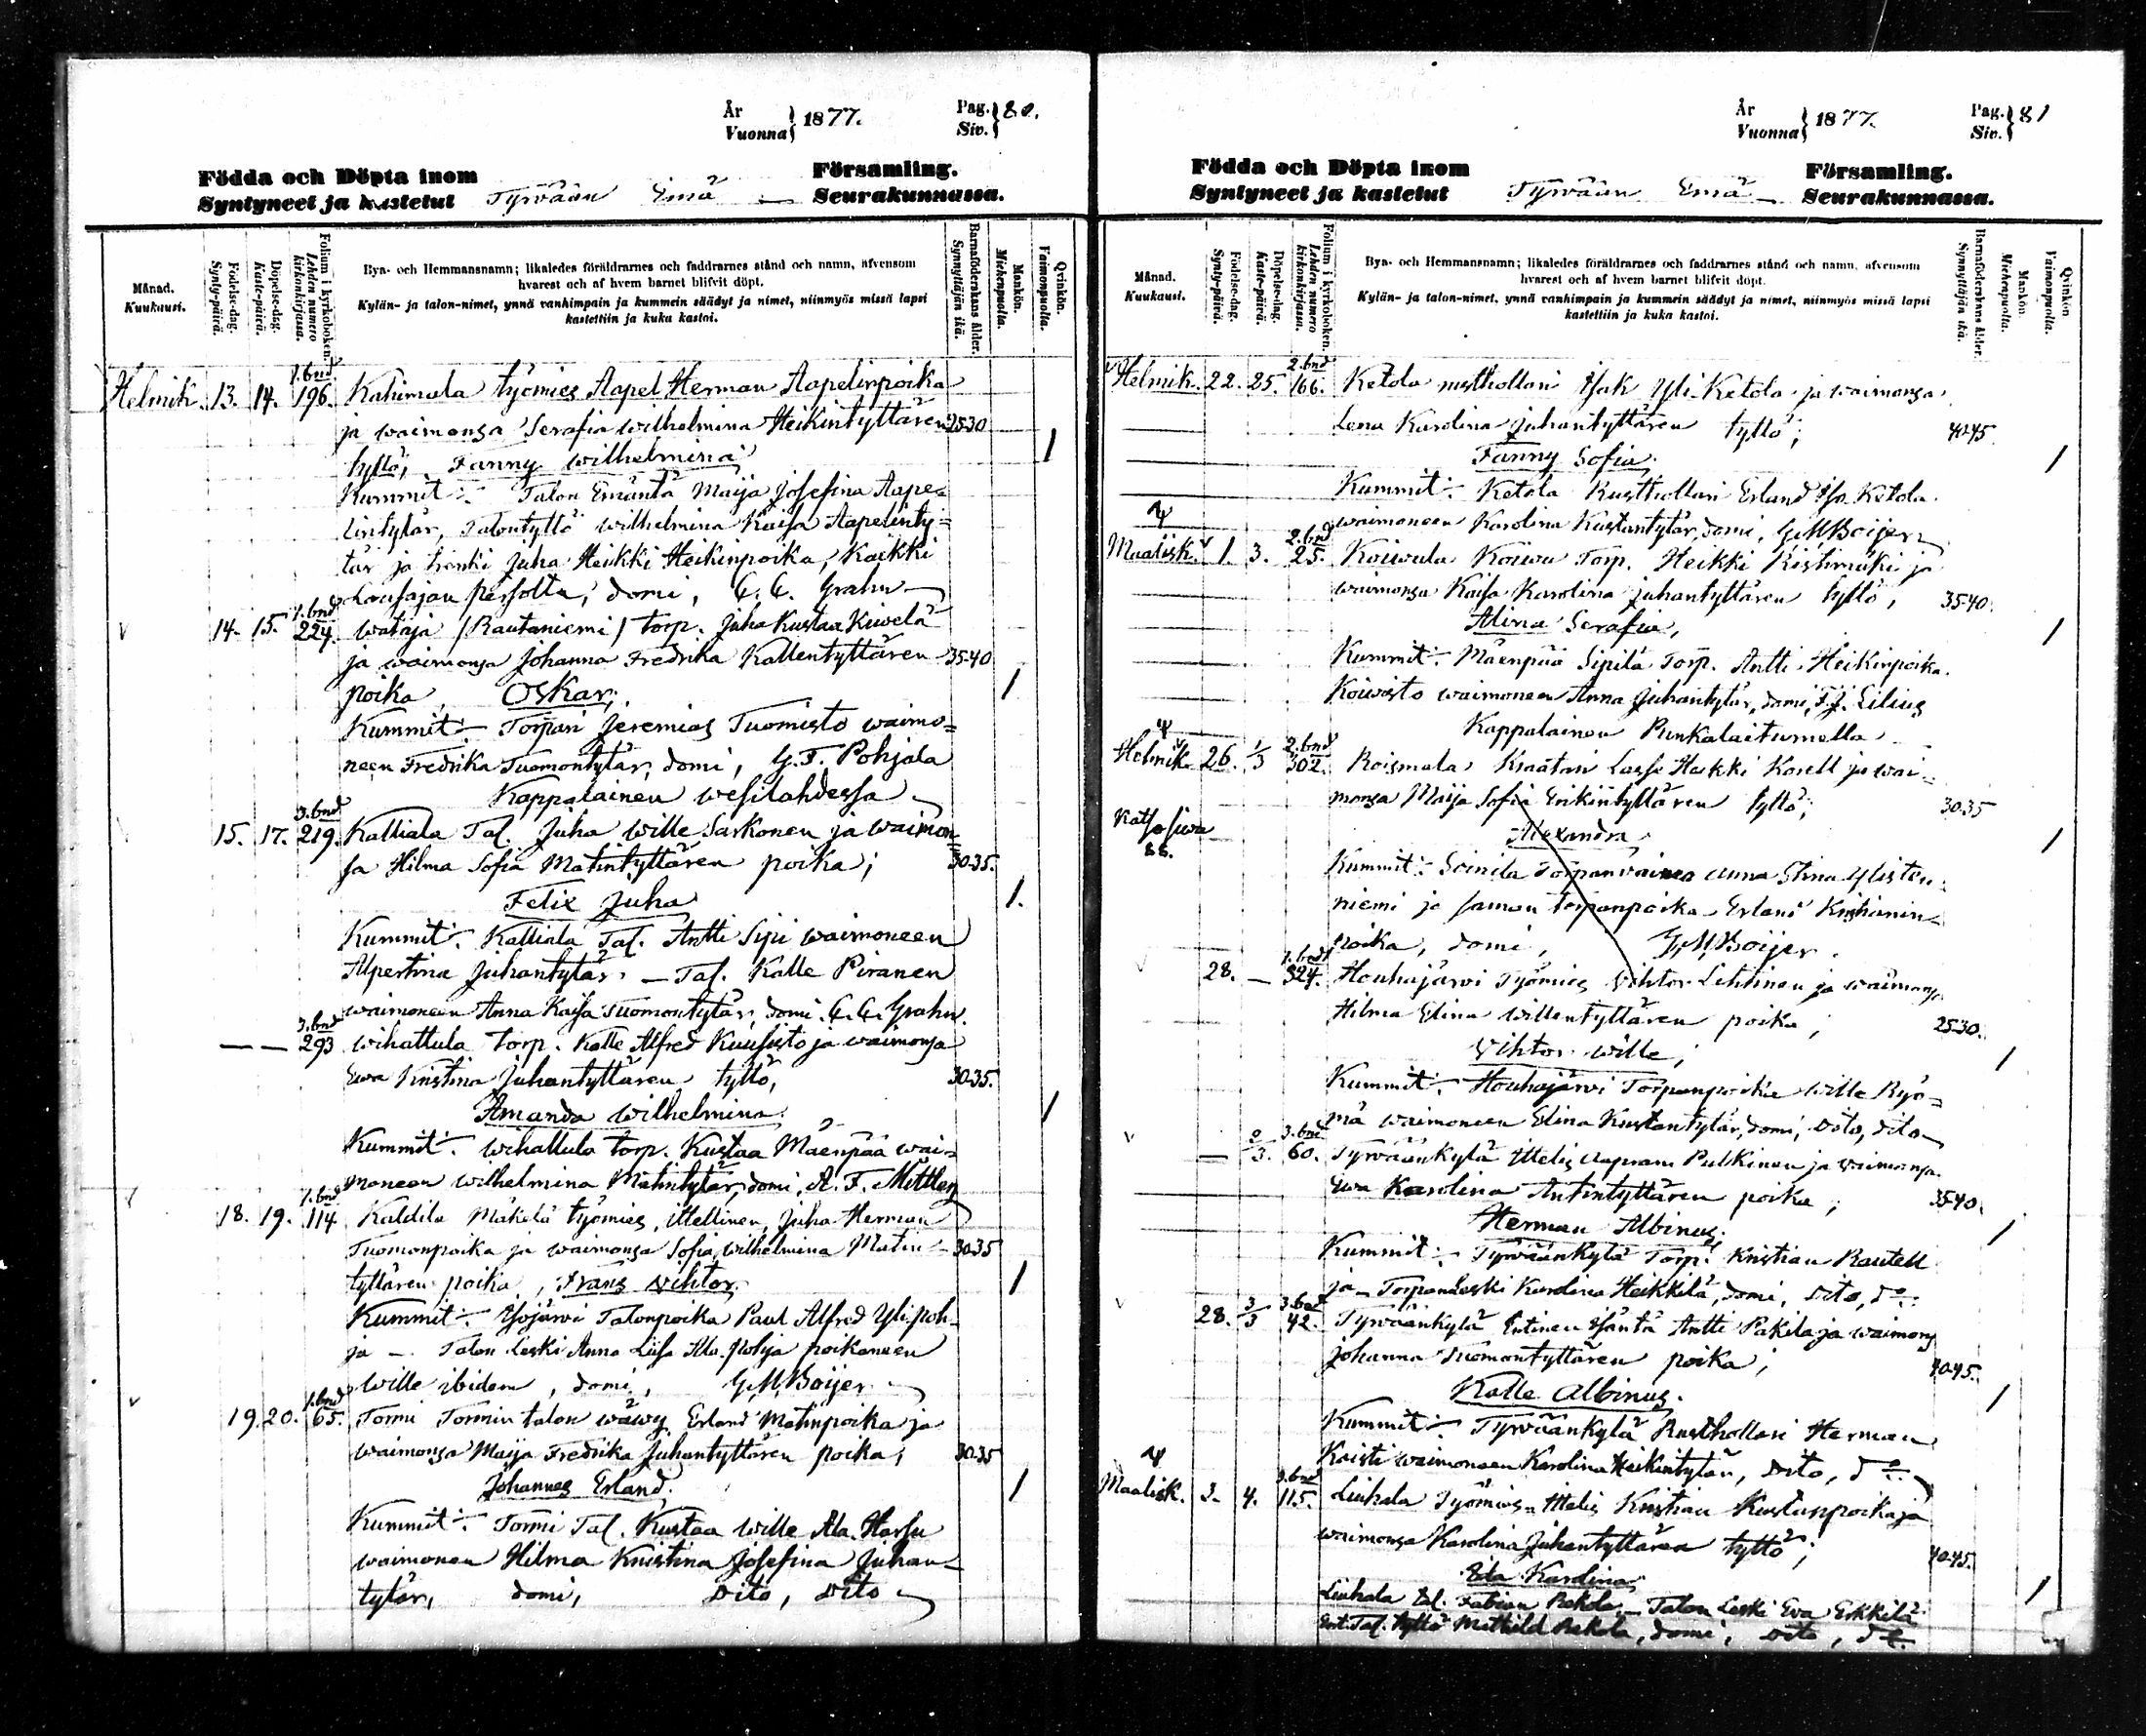 År
Vuonna } 1877.
Pag.
Siv. } 80.
Födda och Döpta inom
Syntyneet ja kastetut
Tyrvään Emä
Församling.
Seurakunnassa.
Månad.
Kuukausi.
Födelse-dag.
Synty-päivä.
Döpelse-dag.
Kaste-päivä.
Folium i kyrkoboken.
Lehden numero kirkonkirjassa.
Bya- och Hemmansnamn; likaledes föräldrarnes och faddrarnes stånd och namn, äfvensom
hvarest och af hvem barnet blifvit döpt.
Kylän- ja talon-nimet, ynnä vanhimpain ja kummein säädyt ja nimet, niinmyös missä lapsi
kastettiin ja kuka kastoi.
Barnaföderskans ålder.
Synnyttäjän ikä.
Mankön.
Miehenpuolta.
Qvinkön.
Vaimonpuolta.
1.bnd
Helmik. 13. 14. 196. Kahimala työmies Aapel Herman Aapelinpoika
ja waimonsa Serafia wilhelmina Heikintyttären 25-30
tyttö, Fanny wilhelmina 1
Kummit:- Talon Emäntä Maija Josefina Aape=
lintytär, Talontyttö wilhelmina Kaisa Aapelinty=
tär ja renki Juha Heikki Heikinpoika, Kaikki
domi, C. C. Grahn
1.bnd
14. 15. 224. wataja /Rautaniemi/ torp. Juha Kustaa Kiwelä
ja waimonsa Johanna Fredrika Kallentyttären 35-40
poika, Oskar; 1
Kummit:- Torpari Jeremias Tuomisto waimo=
neen Fredrika Tuomontytär, domi, G. F. Pohjala
Kappalainen wesilahdessa
3.bnd
15. 17. 219. Kalliala Tal. Juha wille Sarkonen ja waimon=
sa Hilma Sofia Matintyttären poika; 30-35.
Felix Juha 1.
Kummit:- Kalliala Tal. Antti Sipi waimoneen
Alpertina Juhantytär. - Tal. Kalle Piranen
waimoneen Anna Kaisa Tuomontytär, domi. C. C. Grahn.
3.bnd
— — 293 wihattula torp. Kalle Alfred Kuusisto ja waimonsa
Ewa Kristina Juhantyttären tyttö, 30-35.
Amanda wilhelmina. 1
Kummit:- wihattula torp. Kustaa Mäenpää wai=
moneen wilhelmina Matintytär, domi, A. F. Mittler
1.bnd
18. 19. 114 Kaldila Mäkelä työmies, ittellinen, Juha Herman
Tuomonpoika ja waimonsa Sofia wilhelmina Matin= 30-35
tyttären poika, Frans vihtor. 1
Kummit:- Talonpoika Paul Alfred Ylipoh=
ja - Talon Leski Anna Liisa Ala-pohja poikaneen
wille ibidem, domi, G. M. Boijer
1.bnd
19. 20. 65. Tormi Tormin talon wäwy Erland Matinpoika ja
waimonsa Maija Fredrika Juhantyttären poika, 30-35
Johannes Erland. 1
Kummit:- Tormi Tal. Kustaa wille Ala-Harsu
waimoneen Hilma Kristina Josefina Juhan=
tytär, domi, Dito, Dito
År
Vuonna } 1877.
Pag.
Siv. } 81
Födda och Döpta inom
Syntyneet ja kastetut
Tyrvään Emä
Församling.
Seurakunnassa.
Månad.
Kuukausi.
Födelse-dag.
Synty-päivä.
Döpelse-dag.
Kaste-päivä.
Folium i kyrkoboken.
Lehden numero kirkonkirjassa.
Bya- och Hemmansnamn; likaledes föräldrarnes och faddrarnes stånd och namn, äfvensom
hvarest och af hvem barnet blifvit döpt.
Kylän- ja talon-nimet, ynnä vanhimpain ja kummein säädyt ja nimet, niinmyös missä lapsi
kastettiin ja kuka kastoi.
Barnaföderskans ålder.
Synnyttäjän ikä.
Mankön.
Miehenpuolta.
Qvinkön
Vaimonpuolta.
2.bnd
Helmik. 22. 25. 166. Ketola rusthollari Isak Yli-Ketola ja waimonsa
Lena Karolina Juhantyttären tyttö; 40-45
Fanny Sofia. 1
Kummit:- Ketola Rusthollari Erland Iso-Ketola
waimoneen Karolina Kustantytär, domi, G. M. Boijer
2.bnd
Maalisk. 1. 3. 25. Koiwula Koiwu Torp. Heikki Ristimäki ja
waimonsa Kaisa Karolina Juhantyttären tyttö, 35-40.
Alina Serafia, 1
Kummit:- Mäenpää Sipilä Torp. Antti Heikinpoika
Koiwisto waimoneen Anna Juhantytär, domi, F. J. Lilius
Kappalainen Punkalaitumella
2.bnd
Helmik 26. 1/3 302. Roismala Kraatari Lasse Heikki Korell ja wai=
monsa Maija Sofia Erikintyttären tyttö; 30-35
Katso siwu
88.
Alexandra, 1
Kummit:- Soinila Torpanwaimo Anna Stina Ylisten=
niemi ja saman torpanpoika Erland Kristianin=
poika, domi, G. M. Boijer.
1.bnd
28. — 324. Houhajärvi Työmies vihtor Lehtinen ja waimonsa
Hilma Elina willentyttären poika; 25-30.
Vihtor wille; 1
Kummit:- Houhajärvi Torpanpoika wille Ryö=
mä waimoneen Elina Kustantytär, domi, Dito, Dito
3.bnd
— 2/3. 60. Tyrväänkylä Ittelis Aapram Pulkinen ja waimonsa
Ewa Karolina Antintyttären poika; 35-40.
Herman Albinus; 1
Kummit:- Tyrväänkylä Torp. Kristian Rautell
ja - Torpanleski Karolina Heikkilä, domi, Dito, do.
3.bnd
28. 3/3 42. Tyrväänkylä Entinen Isäntä Antti Pakila ja waimons
Johanna Tuomontyttären poika; 40-45.
Kalle Albinus. 1
Kummit:- Tyrväänkylä Rusthollari Herman
Kaisti waimoneen Karolina Heikintytär, Dito, do.
3.bnd
Maalisk. 3. 4. 115. Liuhala Työmies Ittelis Kristian Kustanpoika ja
waimonsa Karolina Juhantyttären tyttö; 40-45.
Ida Karolina; 1
Liuhala Tal. Fabian Rekola - Talon Leski Eva Erkkilä
Ent. Tal. tyttö Mathild Rekola, domi, Dito, do.